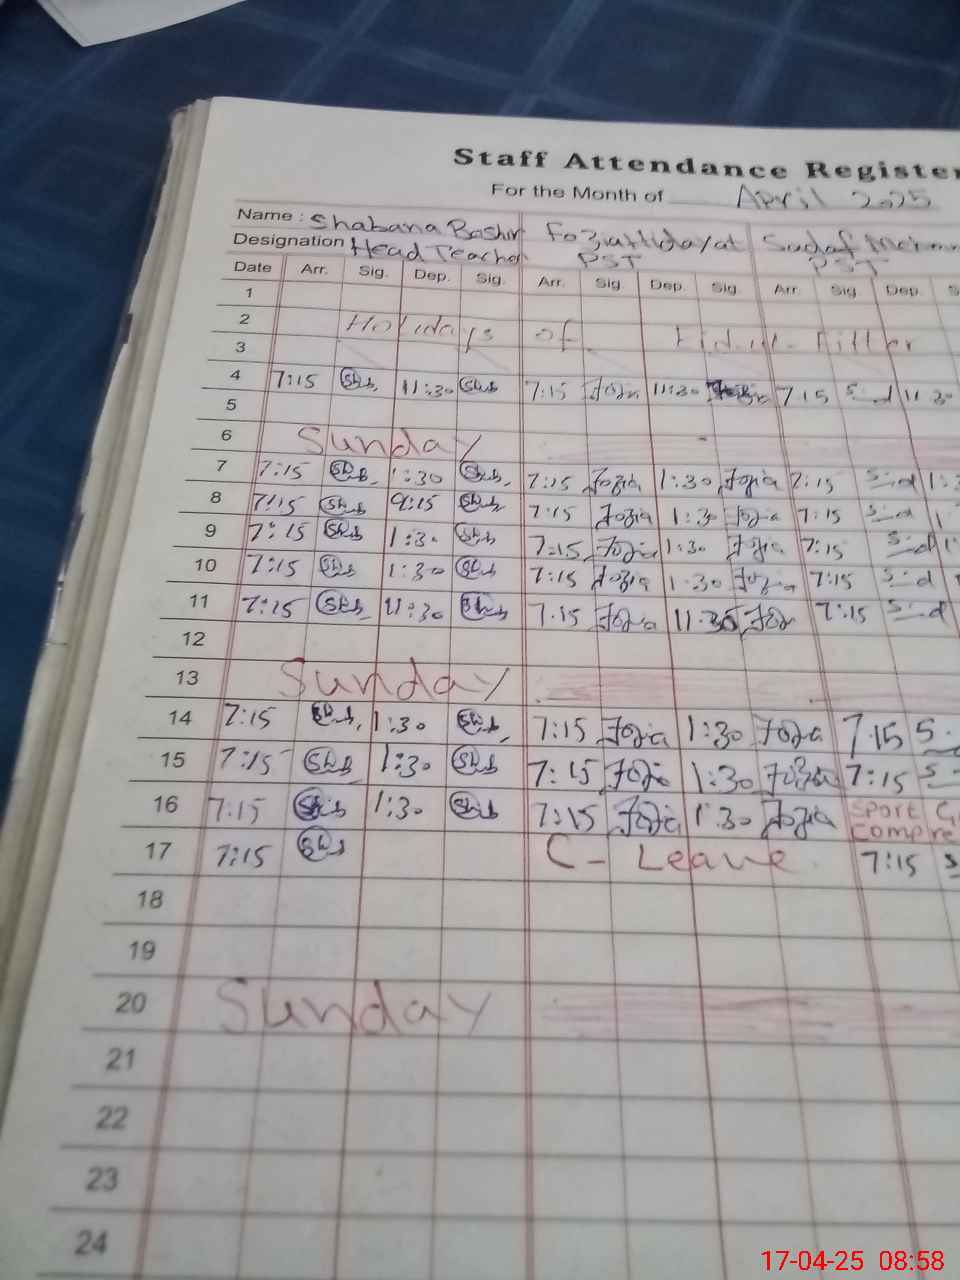 Staff Attendance Register
For the Month of April 2025
Name : Shabana Bashir Foziahidayat Sadaf
Designation Head Teacher PST PST
Date Arr. Sig. Dep. Sig. Arr. Sig. Dep. Sig. Arr. Sig. Dep.
1
2 Holidays of Eid-ul-Fitter
3
4 7:15 Shb 11:30 Shb 7:15 Fozia 11:30 7:15 S-d 11:30
5
6 Sunday
7 7:15 Shb 1:30 Shb 7:15 Fozia 1:30 Fozia 7:15 S-d 1:3
8 7:15 Shb 9:15 Shb 7:15 Fozia 1:30 Fozia 7:15 S-d 1
9 7:15 Shb 1:30 Shb 7:15 Fozia 1:30 Fozia 7:15 S-d 1
10 7:15 Shb 1:30 Shb 7:15 Fozia 1:30 Fozia 7:15 S-d
11 7:15 Shb 11:30 Shb 7:15 Fozia 11:30 Foz 7:15 S-d
12
13 Sunday
14 7:15 Shb 1:30 Shb 7:15 Fozia 1:30 Fozia 7:15 S-
15 7:15 Shb 1:30 Shb 7:15 Fozia 1:30 Fozia 7:15 S-
16 7:15 Shb 1:30 Shb 7:15 Fozia 1:30 Fozia Sport G
compre
17 7:15 Shb C-Leave 7:15 S
18
19
20 Sunday
21
22
23
24
17-04-25 08:58